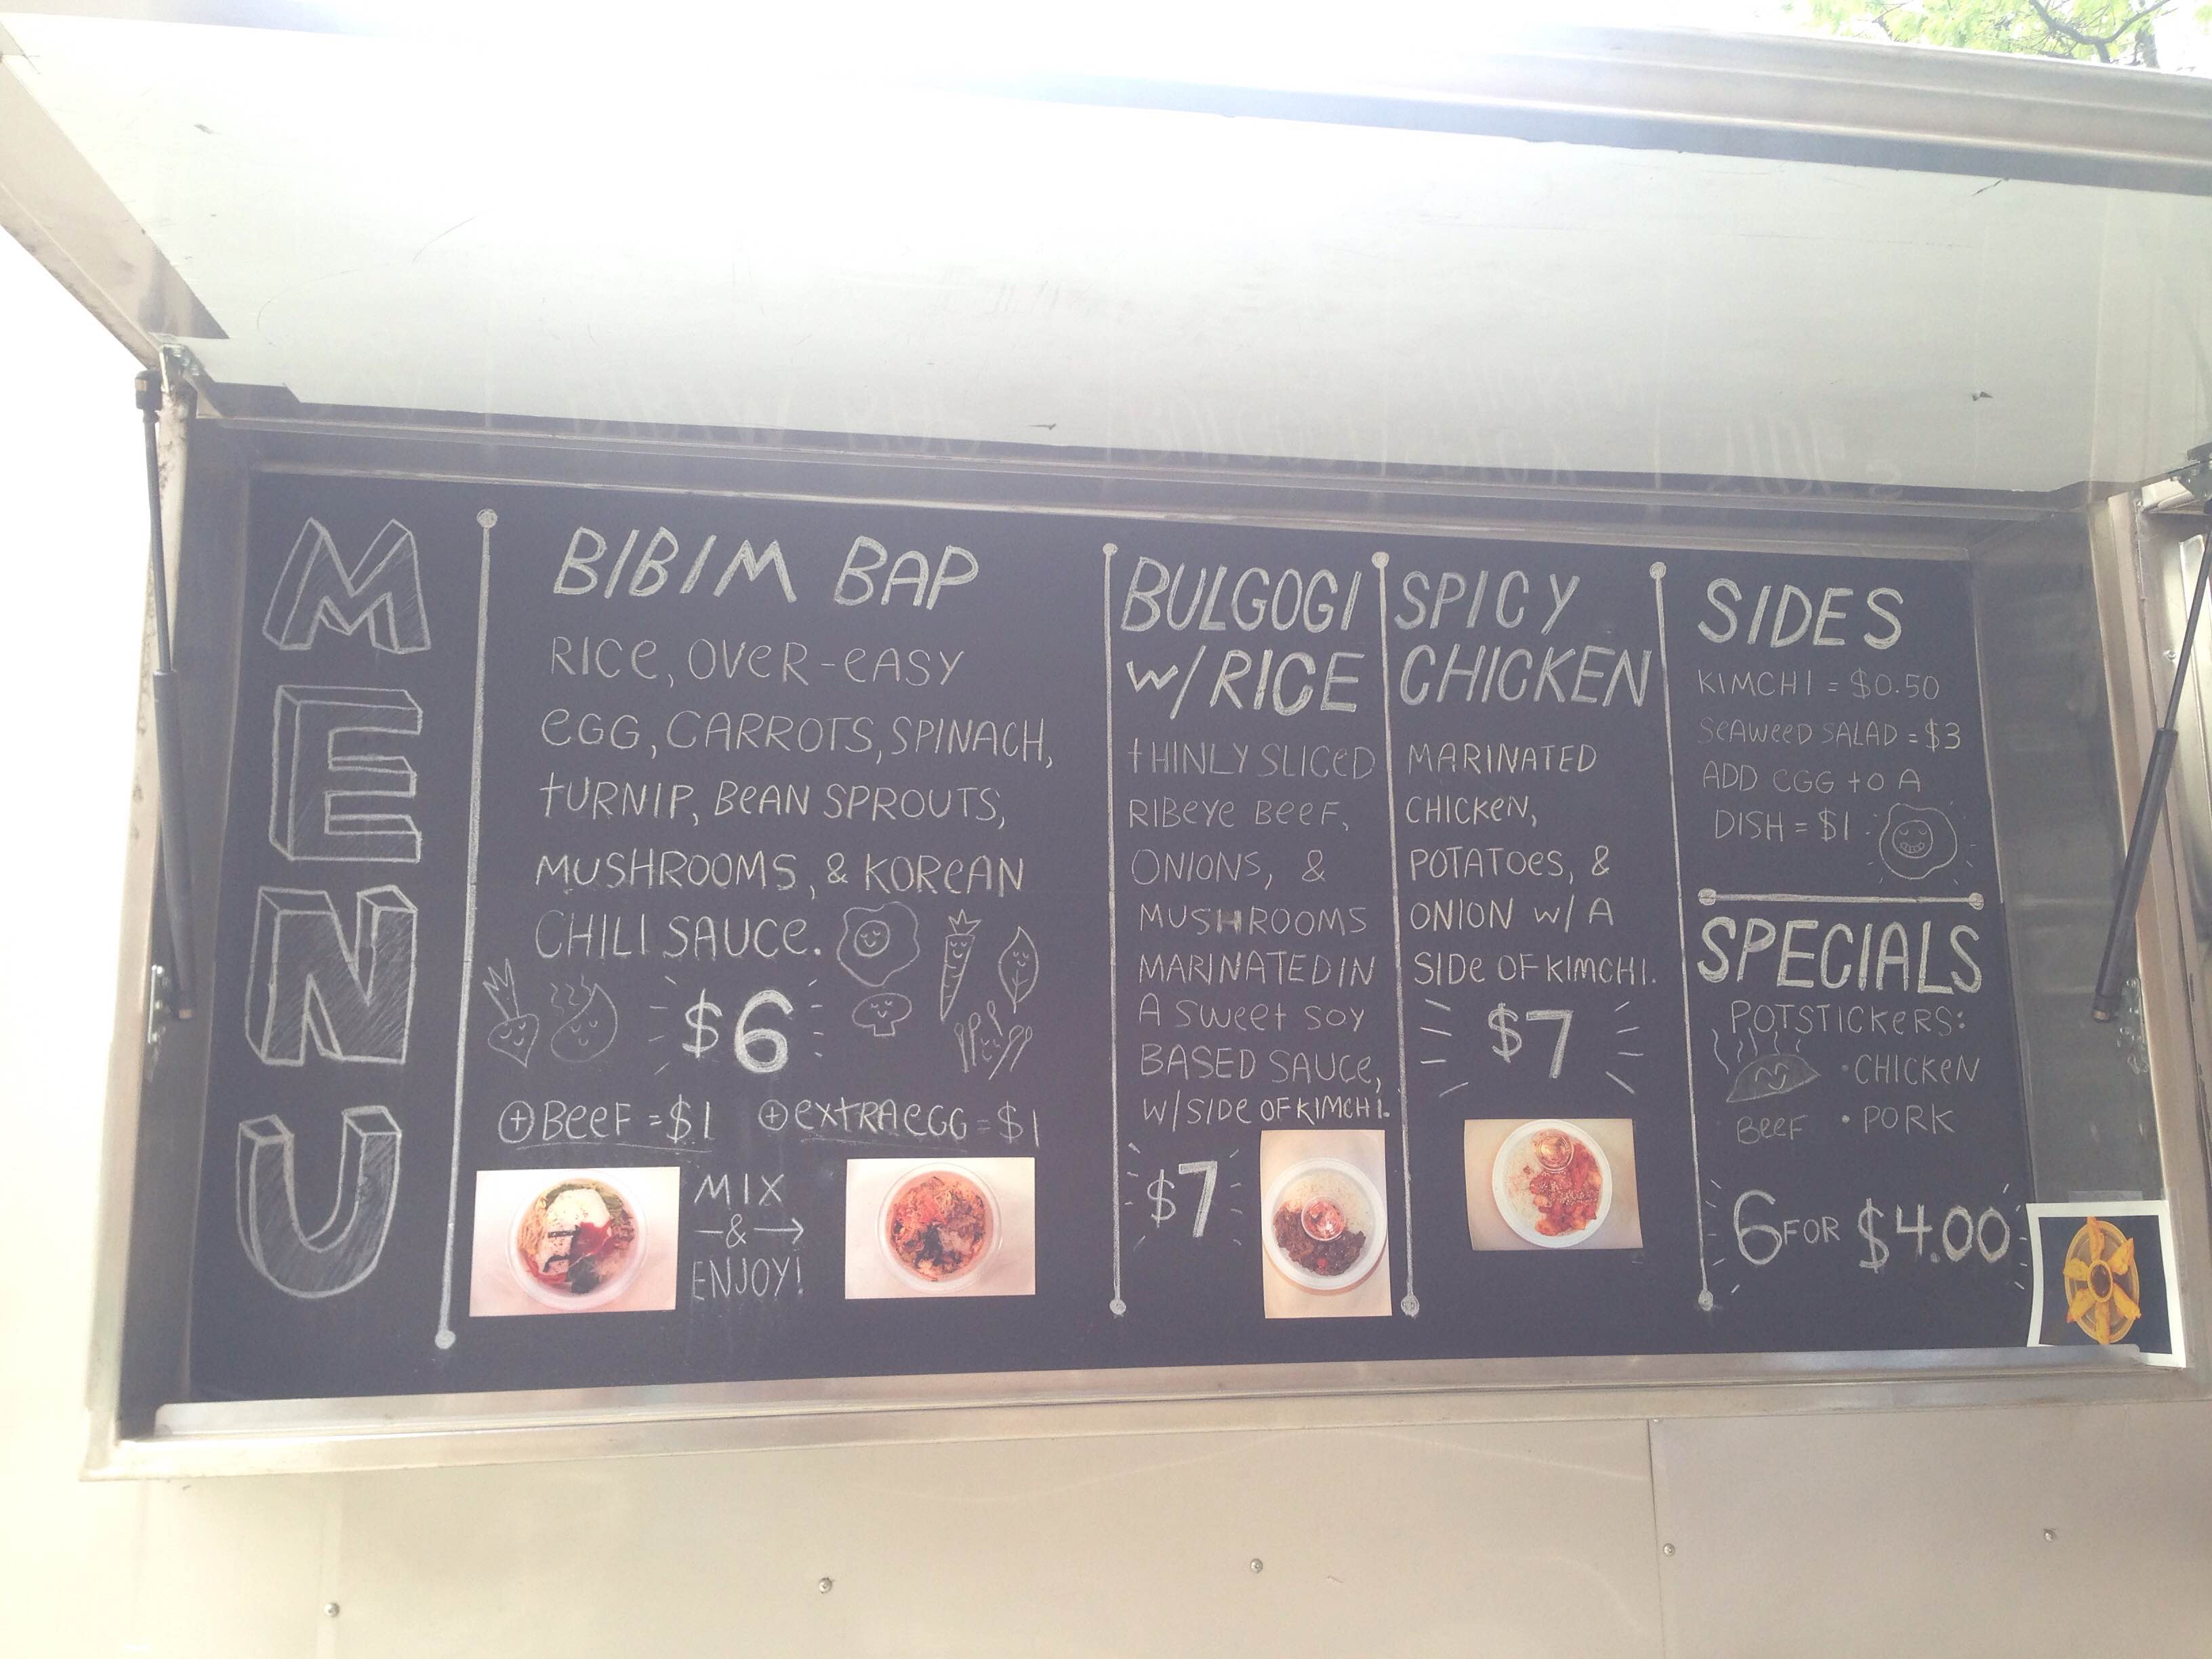 MENU
BIBIM BAP
RICE, OVER-EASY
EGG, CARROTS, SPINACH,
TURNIP, BEAN SPROUTS,
MUSHROOMS, & KOREAN
CHILI SAUCE.
$6
+ BEEF = $1 + EXTRA EGG = $1
MIX
&
ENJOY!
BULGOGI
W/ RICE
THINLY SLICED
RIBEYE BEEF,
ONIONS, &
MUSHROOMS
MARINATED IN
A SWEET SOY
BASED SAUCE,
W/ SIDE OF KIMCHI.
$7
SPICY
CHICKEN
MARINATED
CHICKEN,
POTATOES, &
ONION W/ A
SIDE OF KIMCHI.
$7
SIDES
KIMCHI = $0.50
SEAWEED SALAD = $3
ADD EGG TO A
DISH = $1
SPECIALS
POTSTICKERS:
• CHICKEN
BEEF • PORK
6 FOR $4.00